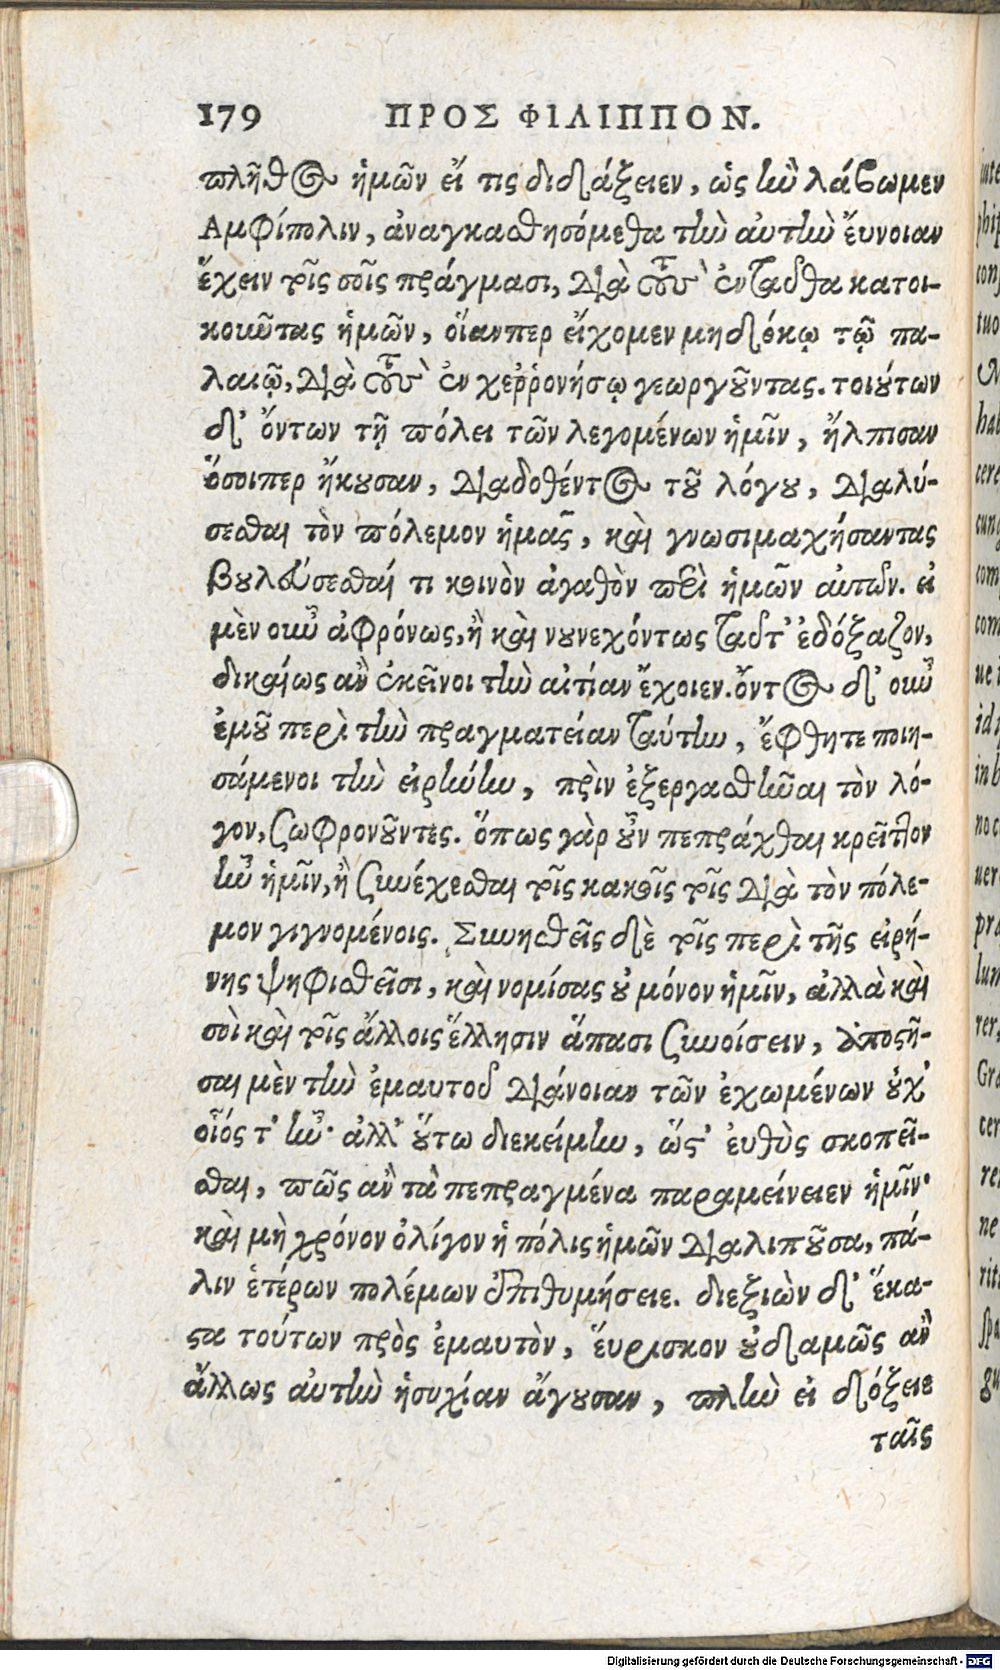 179 ΠΡΟΣ ΦΙΛΙΠΠΟΝ.
πλῆθος ἡμῶν εἴ τις διδάξειεν, ὡς ἢν λάβωμεν
Αμφίπολιν, ἀναγκασθησόμεθα τὴν αὐτὴν ἔυνοιαν
ἔχειν τοῖς σοῖς πράγμασι, διὰ τοὺς ἐνταῦθα κατοι-
κοῦντας ἡμῶν, οἵανπερ εἴχομεν μηδόκῳ τῷ πα-
λαιῷ, διὰ τοὺς ἐν χεῤῥονήσῳ γεωργοῦντας. τοιούτων
δ' ὄντων τῇ πόλει τῶν λεγομένων ἡμῖν, ἤλπισαν
ὅσοιπερ ἤκουσαν, διαδοθέντος τοῦ λόγου, διαλύ-
σεσθαι τὸν πόλεμον ἡμᾶς, καὶ γνωσιμαχήσαντας
βουλεύσεσθαί τι κοινὸν ἀγαθὸν περὶ ἡμῶν αὐτῶν. εἰ
μὲν οὖν ἀφρόνως, ἢ καὶ νουνεχόντως ταῦτ' ἐδόξαζον,
δικαίως ἂν ἐκεῖνοι τὴν αἰτίαν ἔχοιεν. ὄντος δ' οὖν
ἐμοῦ περὶ τὴν πραγματείαν ταύτην, ἔφθητε ποιη-
σάμενοι τὴν εἰρήνην, πρὶν ἐξεργασθῆναι τὸν λό-
γον, σωφρονοῦντες. ὅπως γὰρ οὖν πεπράχθαι κρεῖττον
ἦν ἡμῖν, ἢ συνέχεσθαι τοῖς κακοῖς τοῖς διὰ τὸν πόλε-
μον γιγνομένοις. Συνησθεῖς δὲ τοῖς περὶ τῆς εἰρή-
νης ψηφισθεῖσι, καὶ νομίσας οὐ μόνον ἡμῖν, ἀλλὰ καὶ
σοὶ καὶ τοῖς ἄλλοις ἕλλησιν ἅπασι συνοίσειν, ἀποστῆ-
σαι μὲν τὴν ἐμαυτοῦ διάνοιαν τῶν ἐχωμένων οὐχ'
οἷός τ' ἦν· ἀλλ' οὕτω διεκείμην, ὥστ' ἐυθὺς σκοπεῖ-
σθαι, πῶς ἂν τὰ πεπραγμένα παραμείνειεν ἡμῖν·
καὶ μὴ χρόνον ὀλίγον ἡ πόλις ἡμῶν διαλιποῦσα, πά-
λιν ἑτέρων πολέμων ἐπιθυμήσειε. διεξιὼν δ' ἕκα-
στα τούτων πρὸς ἐμαυτὸν, ἕυρισκον οὐδαμῶς ἂν
ἄλλως αὐτὴν ἡσυχίαν ἄγουσαν, πλὴν εἰ δόξειε
ταῖς
Digitalisierung gefördert durch die Deutsche Forschungsgemeinschaft - DFG